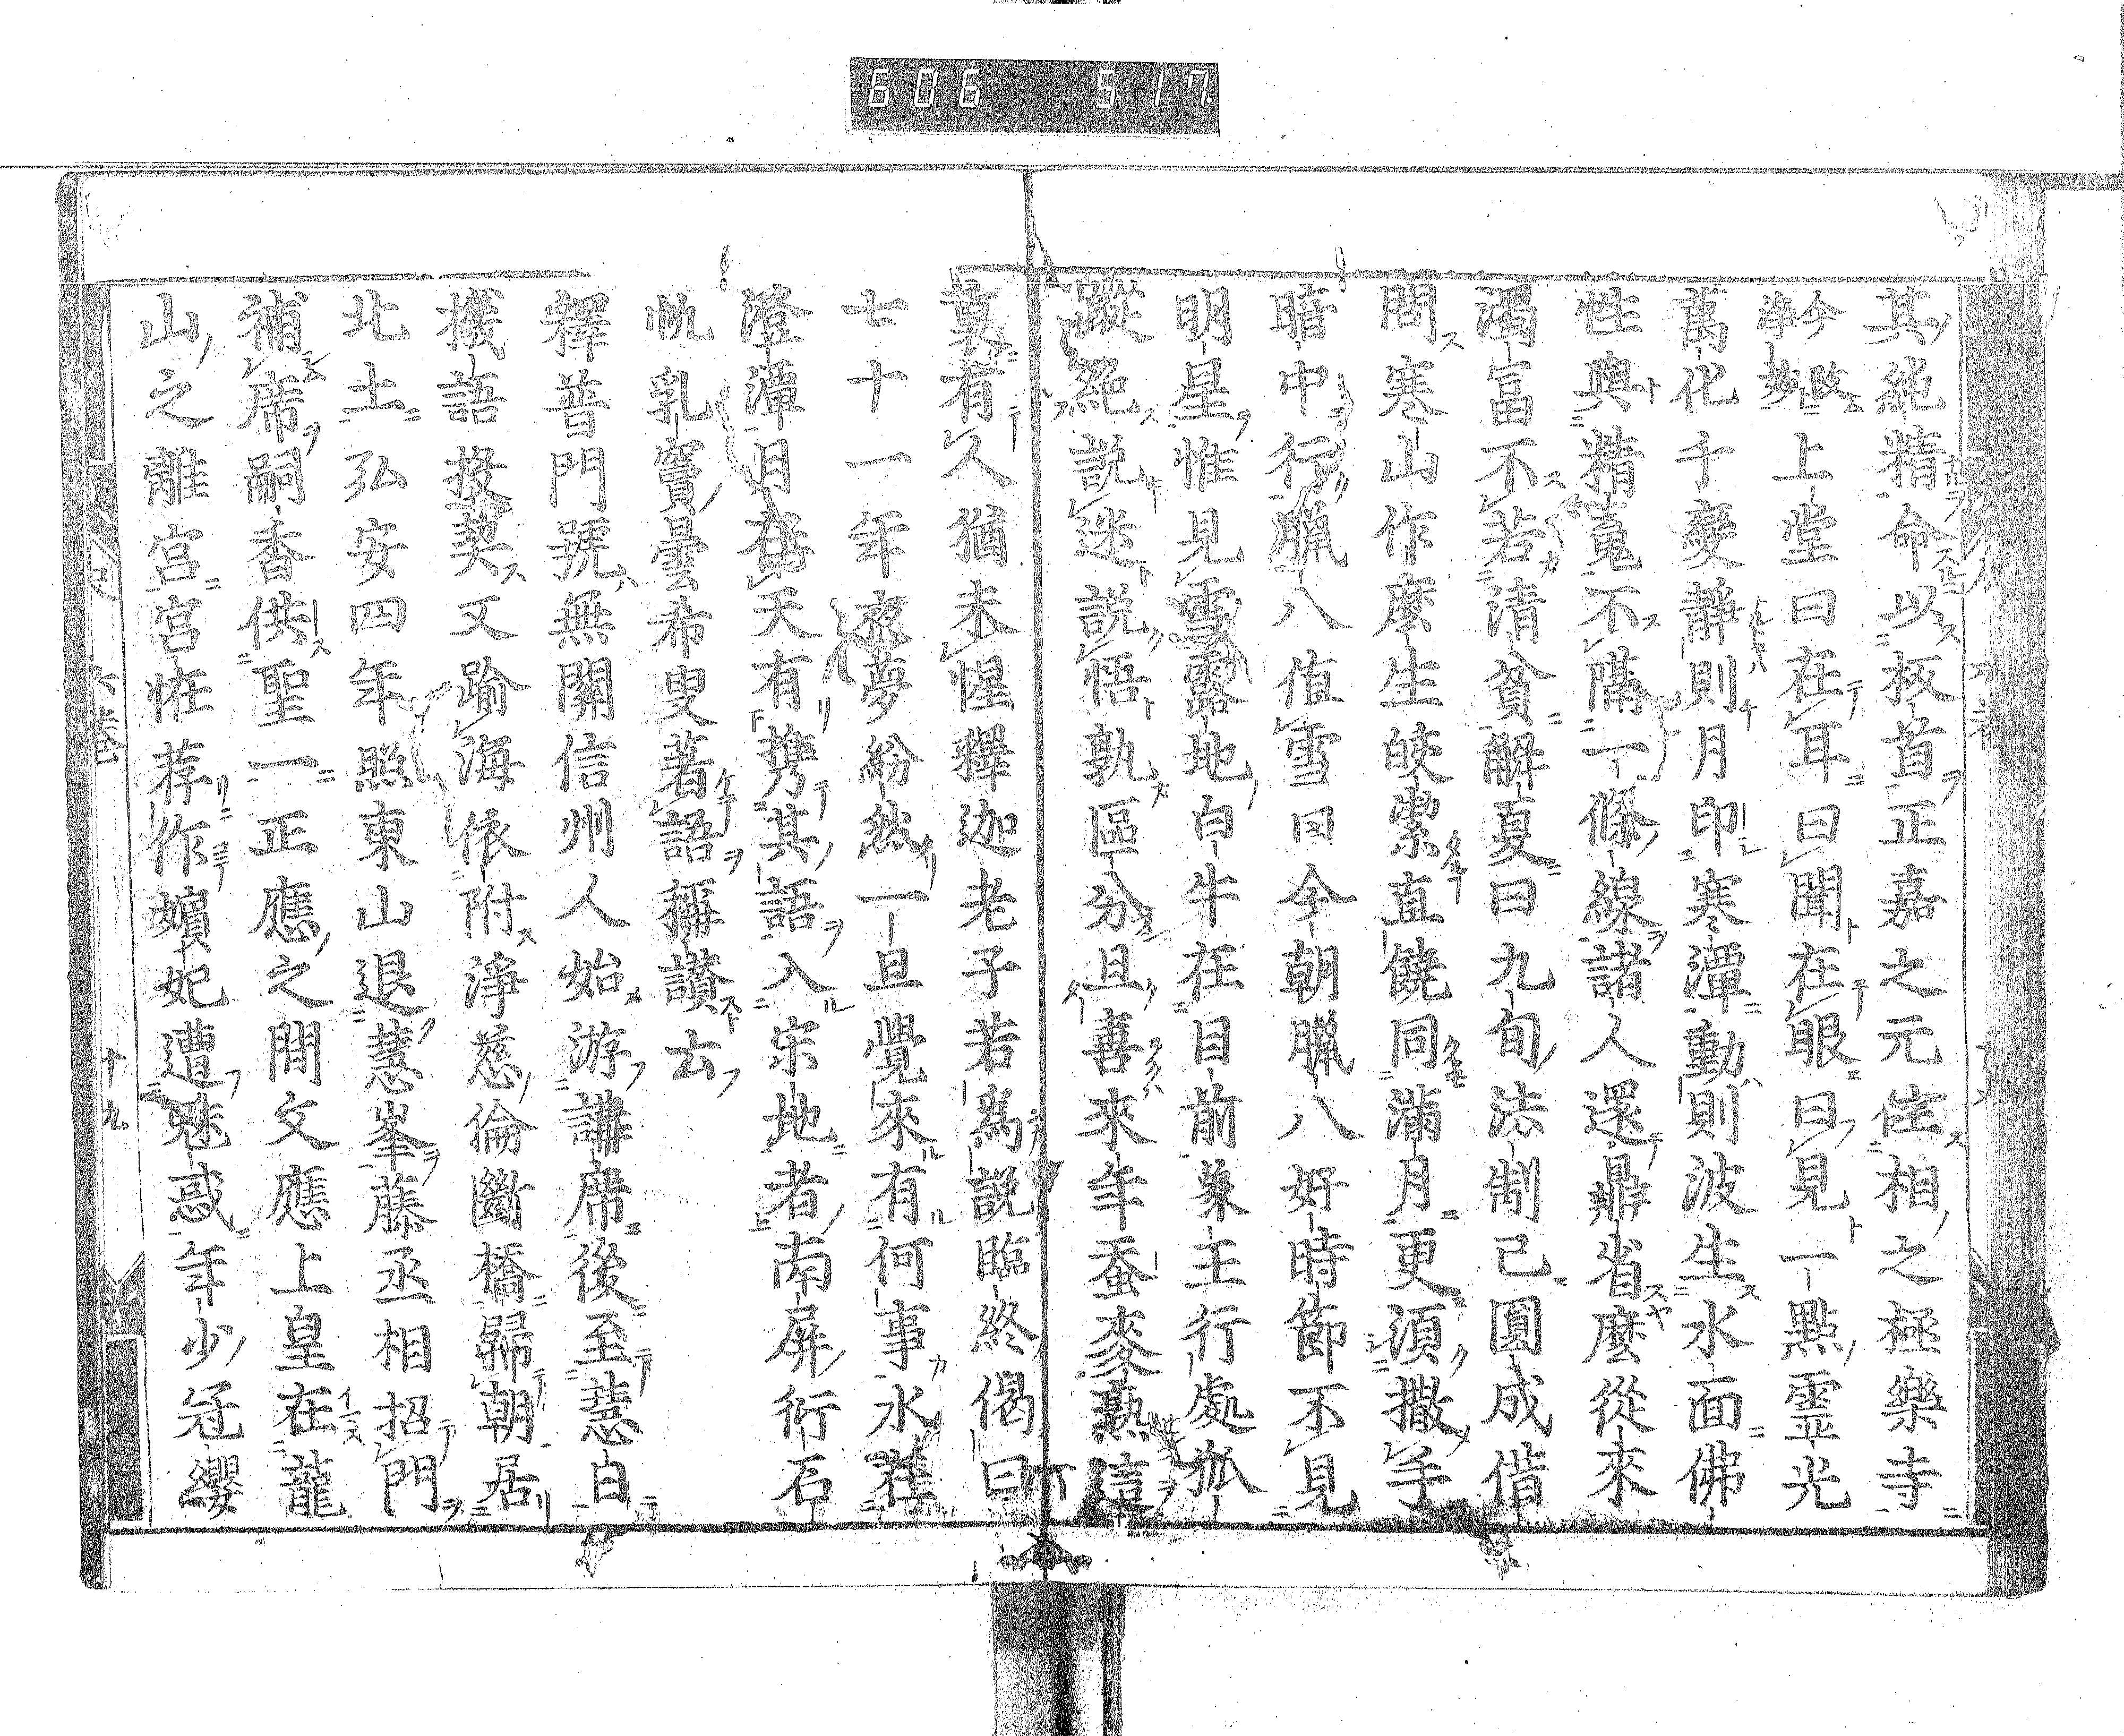 606 517
其絶精命以扳首正嘉之元住相之極樂寺
今改淨妙上堂曰在耳曰聞在眼曰見一點靈光
萬化千變靜則月印寒潭動則波生水面佛
性與精䰟不隔一條線諸人還鼎省麼從來
濁富不若清貧解夏曰九旬法制已圓成借
問寒山作麼生皎潔直饒同滿月更須撒手
暗中行臘八値雪曰今朝臘八好時節不見
明星惟見雪露地白牛在目前象王行處狐
蹤絶説迷説悟孰區分且喜來年蚕麥熟這
裏有人猶未惺釋迦老子若爲説臨終偈曰
七十一年夜夢紛然一旦覺來有何事水在
澄潭月在天有携其語入宋地者南屏衍石
帆乳竇曇希叟著語稱讃去
釋普門號無關信州人始游講席後至慧日
機語投契又踰海依附淨慈倫斷橋歸朝居
北土弘安四年照東山退慧峯藤丞相招門
補席嗣香供聖一正應之間文應上皇在龍
山之離宮宮恠荐作嬪妃遭魅惑年少冠纓
卷
十九